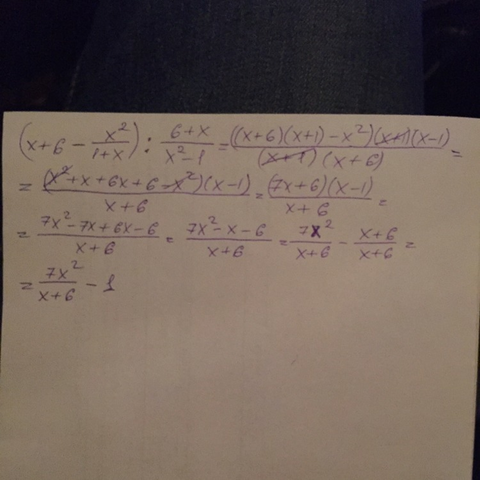 (x+6 - x²/(1+x)) : (6+x)/(x²-1) = ((x+6)(x+1) - x²)(x+1)(x-1)/((x+1)(x+6)) =
= (x²+x+6x+6-x²)(x-1)/(x+6) = (7x+6)(x-1)/(x+6) =
= (7x²-7x+6x-6)/(x+6) = (7x²-x-6)/(x+6) = 7x²/(x+6) - (x+6)/(x+6) =
= 7x²/(x+6) - 1